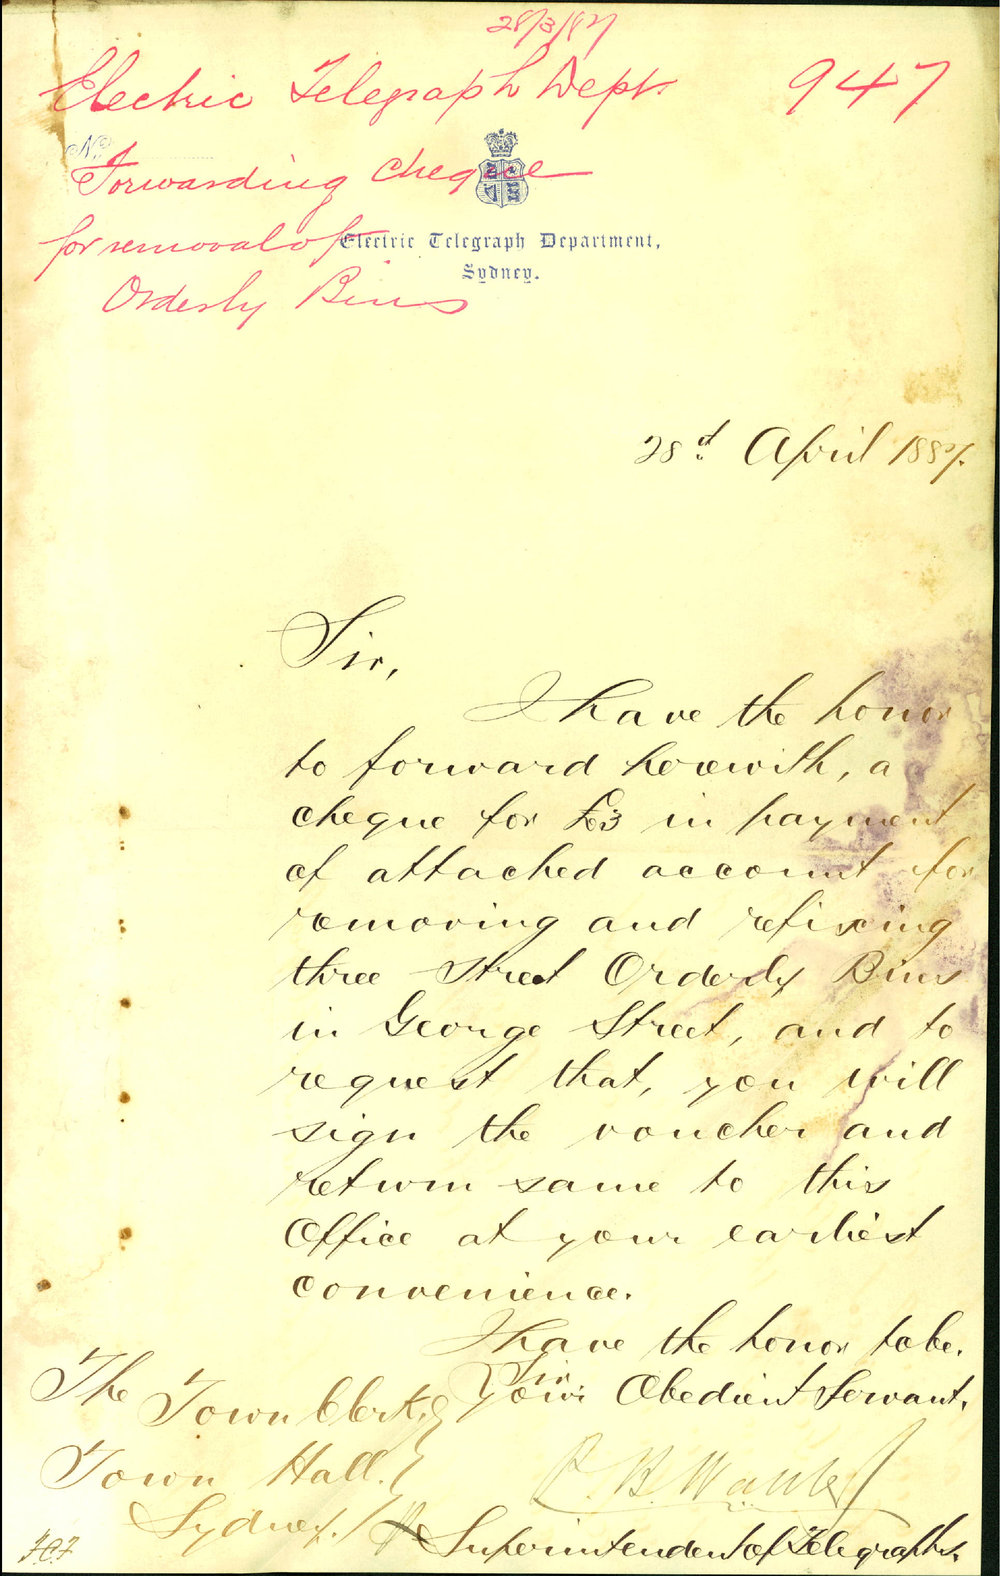 28/3/87
Electric Telegraph Dept. 947
No.
Forwarding cheque
for removal of
Orderly Bins
Electric Telegraph Department,
Sydney.
28th April 1887.
Sir,
I have the honor
to forward herewith, a
cheque for £3 in payment
of attached account for
removing and refixing
three Street Orderly Bins
in George Street, and to
request that, you will
sign the voucher and
return same to this
Office at your earliest
convenience.
I have the honor to be.
Sir
Your Obedient Servant.
P. B. Walker
Superintendent of Telegraphs.
The Town Clerk,
Town Hall.
Sydney.